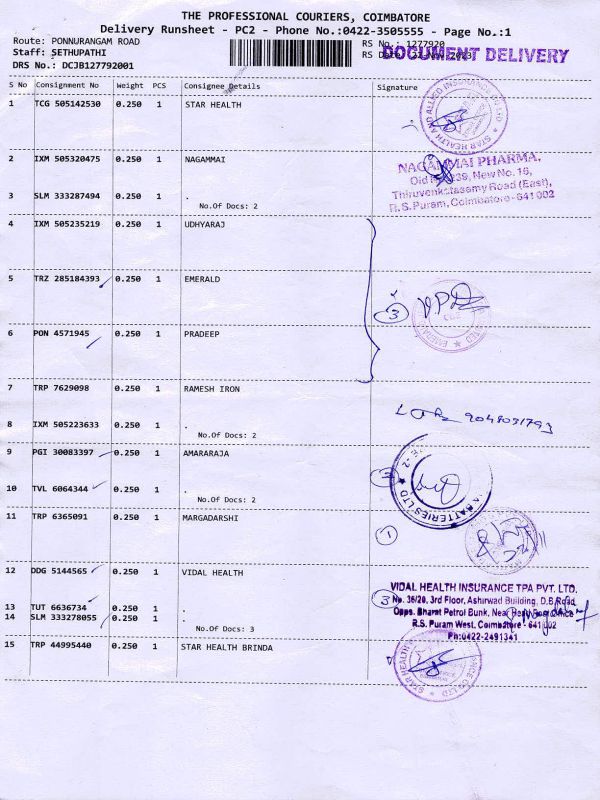 THE PROFESSIONAL COURIERS, COIMBATORE
Delivery Runsheet - PC2 - Phone No.:0422-3505555 - Page No.:1
Route: PONNURANGAM ROAD
Staff: SETHUPATHI
DRS No.: DCJB127792001
RS No.: 1277920
DOCUMENT DELIVERY
S No Consignment No Weight PCS Consignee Details Signature
1 TCG 505142530 0.250 1 STAR HEALTH
STAR HEALTH AND ALLIED INSURANCE
2 IXM 505320475 0.250 1 NAGAMMAI
NAGAMMAI PHARMA,
Old No.239, New No. 16,
3 SLM 333287494 0.250 1 .
Thiruvenkatasamy Road (East),
No.Of Docs: 2
R.S. Puram, Coimbatore - 641 002
4 IXM 505235219 0.250 1 UDHYARAJ
5 TRZ 285184393 0.250 1 EMERALD
3
6 PON 4571945 0.250 1 PRADEEP
7 TRP 7629098 0.250 1 RAMESH IRON
8 IXM 505223633 0.250 1 .
No.Of Docs: 2
9 PGI 30083397 0.250 1 AMARARAJA
10 TVL 6064344 0.250 1 .
No.Of Docs: 2
BATTERIES LTD
11 TRP 6365091 0.250 1 MARGADARSHI
1
12 DDG 5144565 0.250 1 VIDAL HEALTH
VIDAL HEALTH INSURANCE TPA PVT. LTD.
3
No. 36/20, 3rd Floor, Ashirwad Building, D.B.Road,
13 TUT 6636734 0.250 1 .
Opps. Bharat Petrol Bunk, Near
14 SLM 333278055 0.250 1 .
R.S. Puram West, Coimbatore - 641 002
No.Of Docs: 3
Ph:0422-2491341
15 TRP 44995440 0.250 1 STAR HEALTH BRINDA
STAR HEALTH